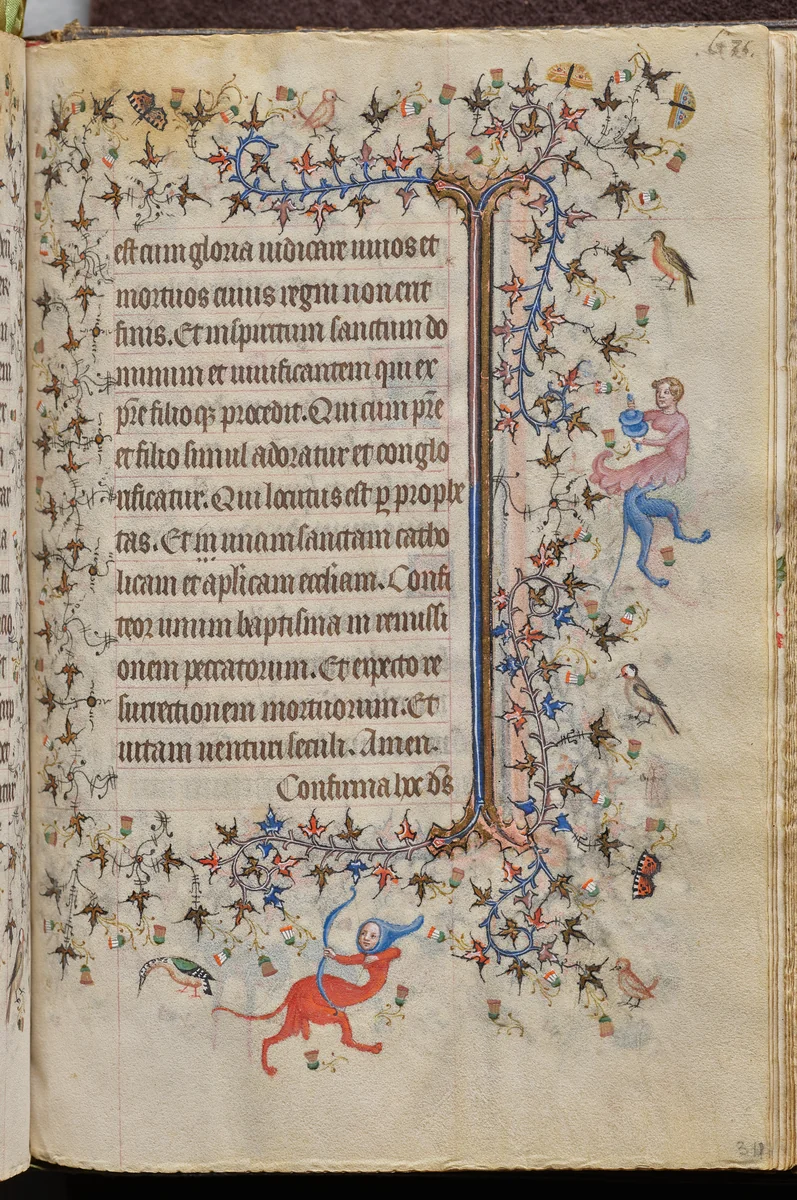 est cum gloria iudicare uiuos et
mortuos cuius regni non erit
finis. Et in spiritum sanctum do
minum et uiuificantem qui ex
pr̄e filio qȝ procedit. Qui cum pr̄e
et filio simul adoratur et conglo
rificatur. Qui locutus est ꝑ prophe
tas. Et in unam sanctam catho
licam et ap̄licam eccl̄iam. Confi
teor unum baptisma in remissi
onem peccatorum. Et expecto re
surrectionem mortuorum. Et
uitam uenturi seculi. Amen.
Confirma hoc dn̄s